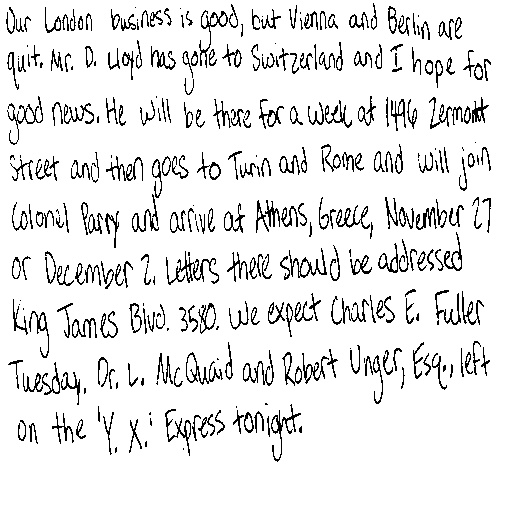 Our London business is good, but Vienna and Berlin are
quit. Mr. D. Lloyd has gone to Switzerland and I hope for
good news. He will be there for a week at 1496 Zermott
Street and then goes to Turin and Rome and will join
Colonel Parry and arrive at Athens, Greece, November 27
or December 2. Letters there should be addressed
King James Blvd. 3580. We expect Charles E. Fuller
Tuesday. Dr. L. McQuaid and Robert Unger, Esq., left
on the 'Y. X.' Express tonight.